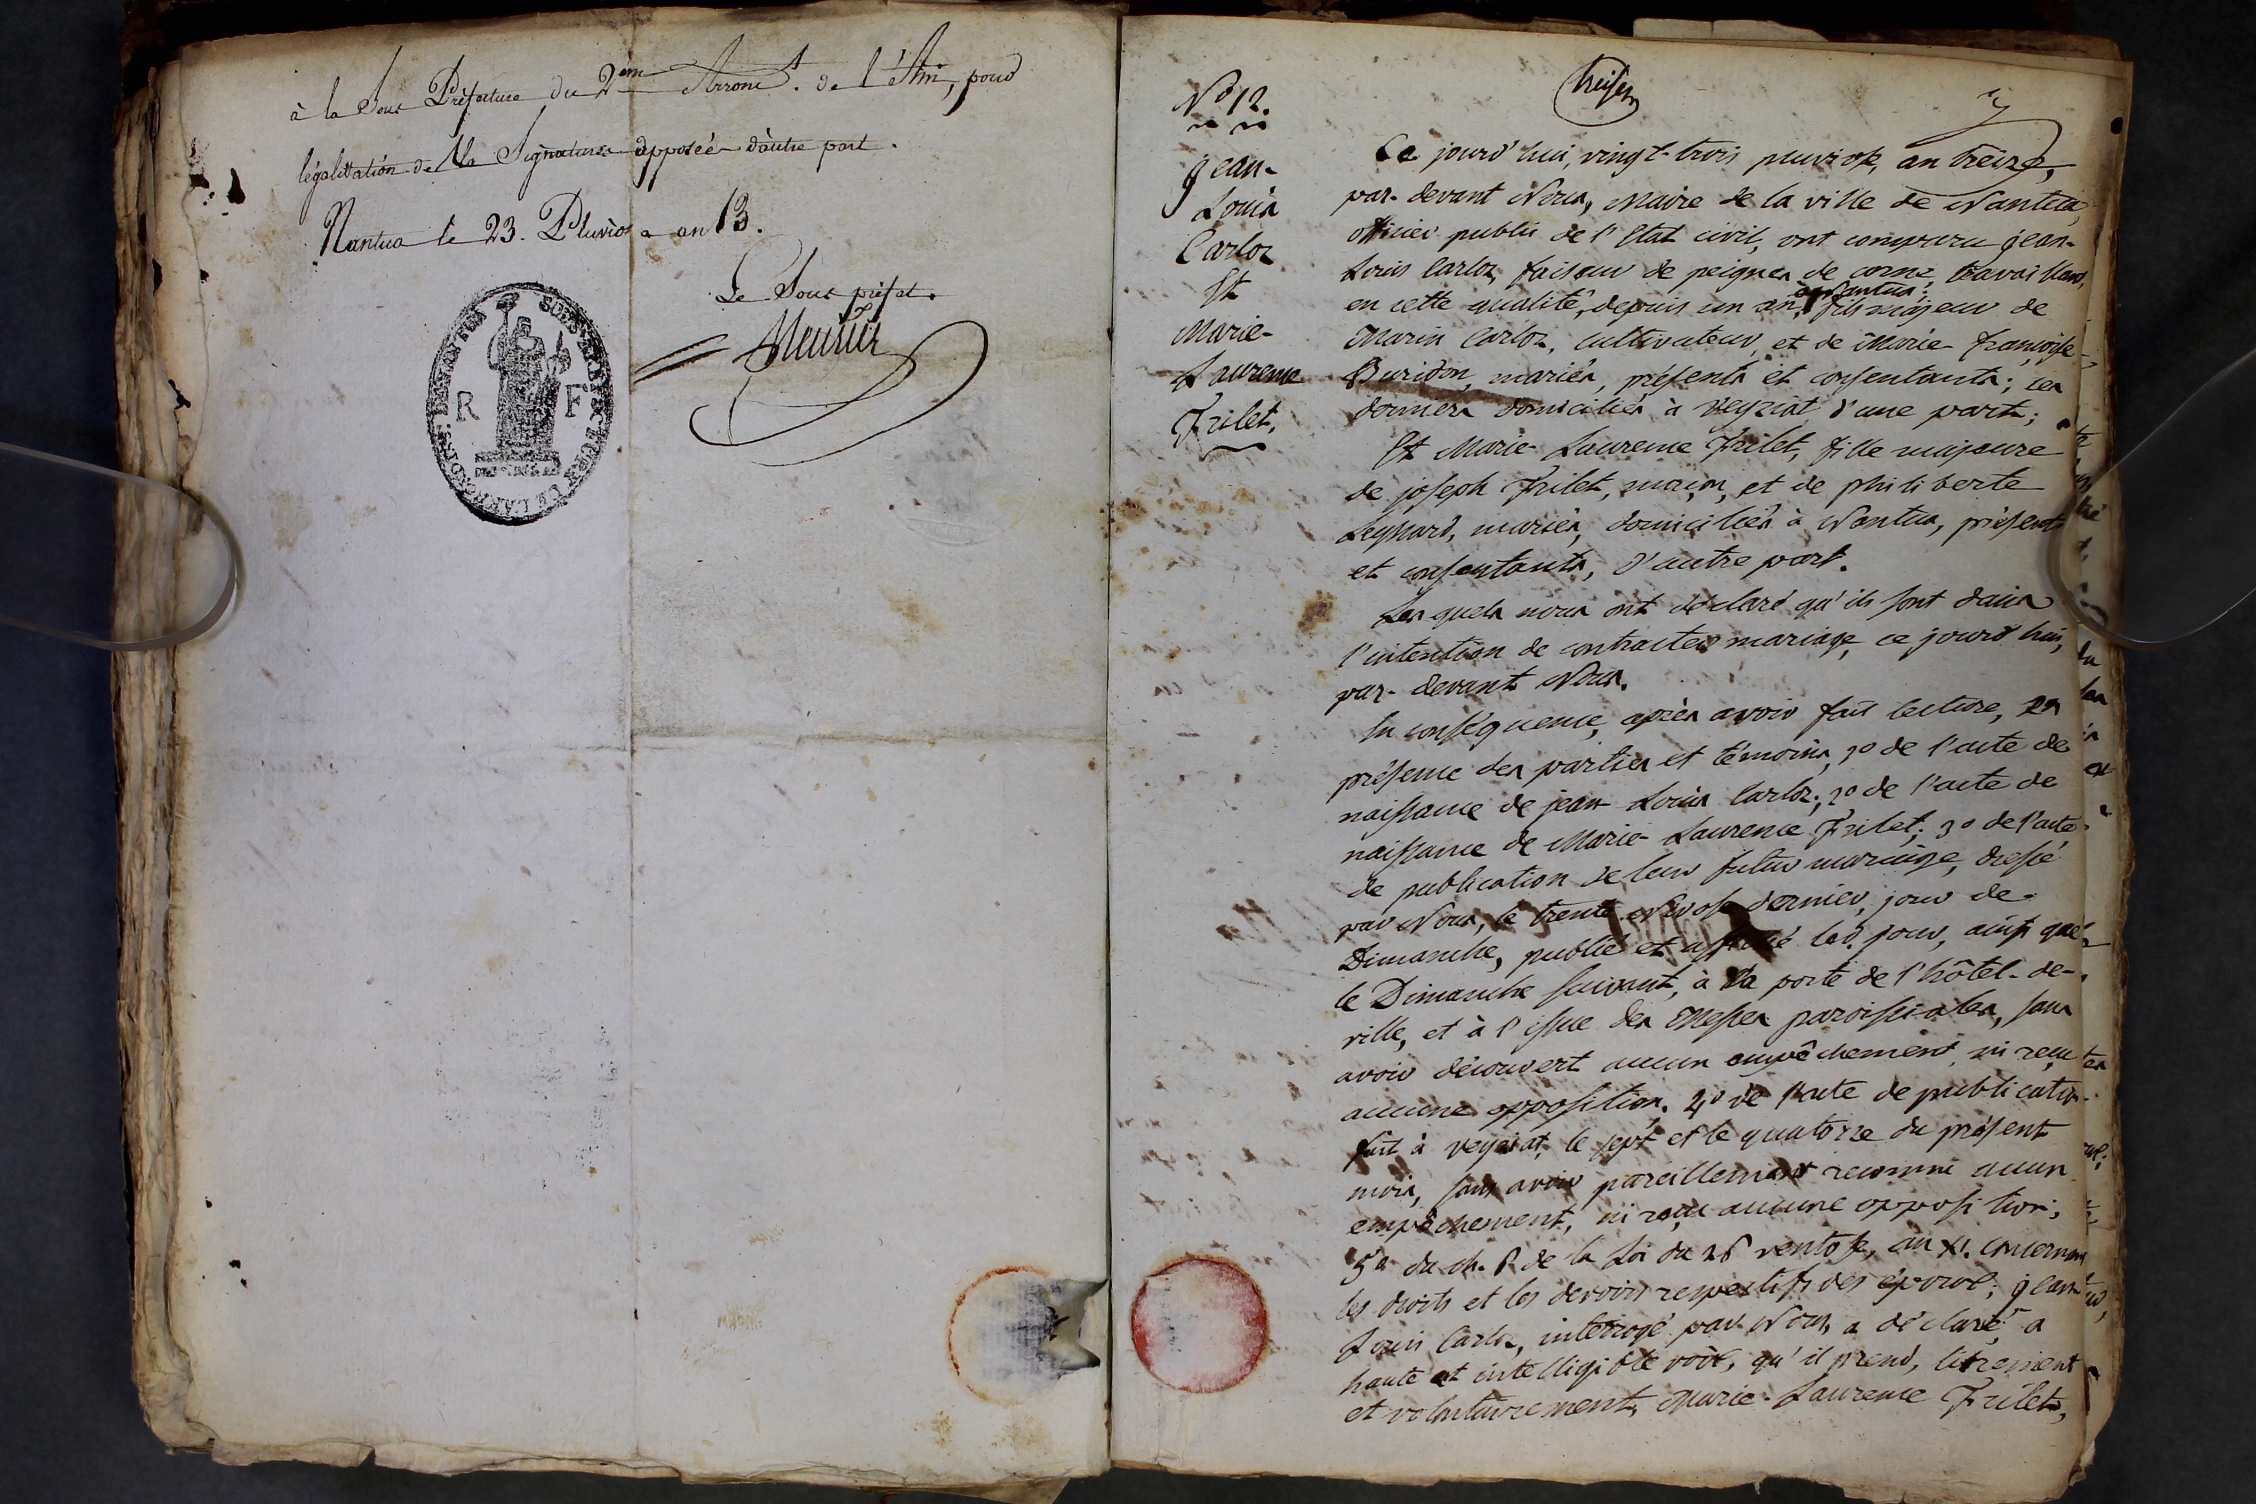 à la Sous Préfecture du 2ème Arront. de l'Ain, pour
légalisation de la Signature apposée d'autre part.
Nantua le 23. Pluviose an 13.
Le Sous préfet.
R F
treize
No 12.
jean-
Louis
Carloz
Et
Marie-
Laurence
Frilet.
Ce jourd'hui, vingt-trois pluviose, an treize,
par-devant Nous, Maire de la ville de Nantua,
officier public de l'Etat civil, ont comparu jean-
Louis Carloz, faiseur de peignes de corne, travaillant,
en cette qualité, depuis un an, à Nantua; fils majeur de
Marin Carloz, cultivateur, et de Marie-françoise
Buridon, mariés, présents et consentants; ces
derniers domiciliés à Veyziat, d'une part;
Et Marie-Laurence Frilet, fille majeure
de joseph Frilet, maçon, et de philiberte
mariés, domiciliés à Nantua, présents
et consentants, d'autre part.
Lesquels nous ont déclaré qu'ils sont dans
l'intention de contracter mariage, ce jourd'hui,
par-devant Nous.
En conséquence, après avoir fait lecture, en
présence des parties et témoins, 1o de l'acte de
naissance de jean-Louis Carloz; 2o de l'acte de
naissance de Marie-Laurence Frilet; 3o de l'acte
de publication de leur futur mariage, dressé
par Nous, le trente Nivose dernier, jour de
Dimanche, publié et affiché led. jour, ainsi que
le Dimanche suivant, à la porte de l'hôtel-de-
ville, et à l'issue des Messes paroissiales, sans
avoir découvert aucun empêchement, ni reçu
aucune opposition. 4o de l'acte de publication
fait à veyziat, le sept et le quatorze du présent
mois, sans avoir pareillement reconnu aucun
empêchement, ni reçu aucune opposition;
5o du ch. 6 de la Loi du 26 ventose, an XI. concernant
les droits et les devoirs respectifs des époux; jean-
Louis Carloz, interrogé par Nous, a déclaré, à
haute et intelligible voix, qu'il prend, librement
et volontairement, Marie-Laurence Frilet,